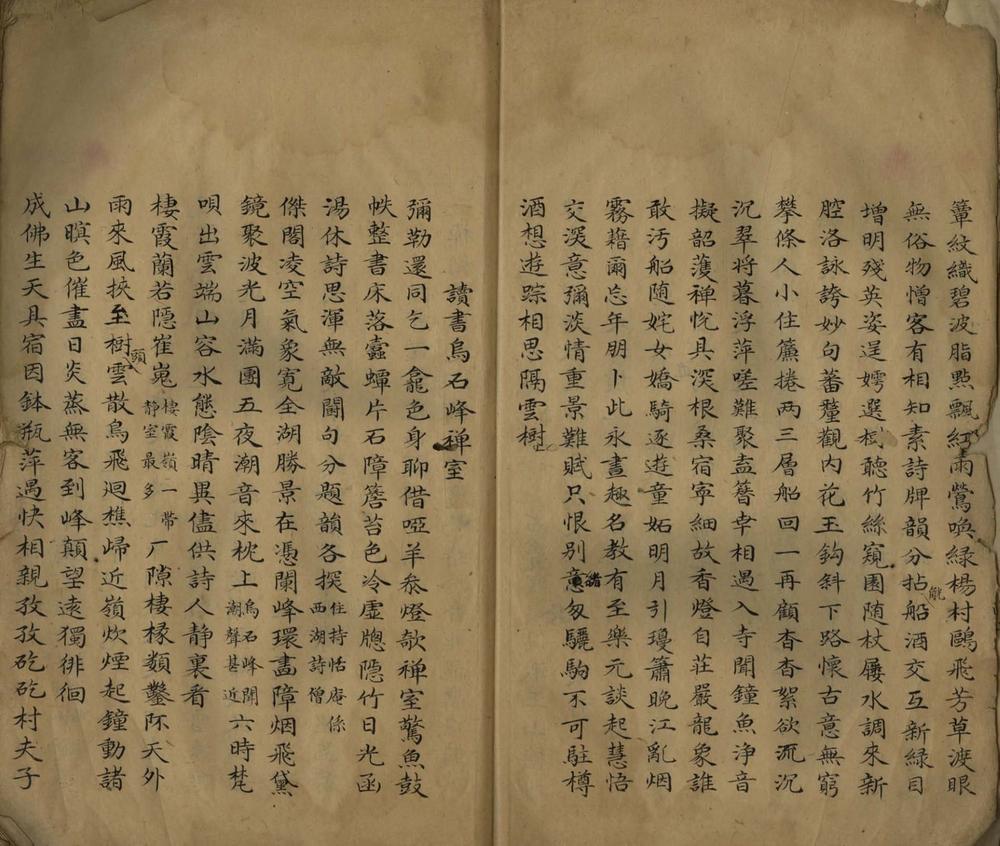 簟紋織碧波脂點飄紅雨鶯喚綠楊村鷗飛芳草渡眼
無俗物憎客有相知素詩牌韻分拈船酒交互新緑目
觥
增明殘英姿逞嫮選樹聽竹絲窺園随杖屨水調來新
腔洛詠誇妙句蕃釐觀内花玉鈎斜下路懷古意無窮
攀條人小住簾捲两三層船回一再顧杳杳絮欲沉沉
沉翠将暮浮萍嗟難聚盍簪幸相遇入寺聞鐘魚浄音
擬韶頀禅恱具深根桑宿寜細故香燈自荘嚴龍象誰
敢汚船随姹女嬌騎逐遊童妬明月引瓊簫晚江亂烟
霧藉爾忘年朋卜此永晝趣名教有至樂元談起慧悟
交深意彌淡情重景難賦只恨别意匆驪駒不可駐樽
緒
酒想遊踪相思隔雲樹
讀書烏石峰禅室
彌勒還同乞一龕色身聊借啞羊叅燈欹禅室驚魚鼓
帙整書床落蠹蟫片石障簷苔色冷虚牕隠竹日光函
湯休詩思渾無敵閫句分題韻各探住持恬庵係西湖詩僧
傑閣凌空氣象寛全湖勝景在憑闌峰環畵障烟飛黛
鏡聚波光月滿團五夜潮音來枕上烏石峰聞潮聲甚近六時梵
唄出雲端山容水態陰晴異儘供詩人静裏看
棲霞蘭若隠崔嵬棲霞嶺一帶静室最多厂隙棲椽類鑿阫天外
雨來風挾至樹雲散鳥飛迴樵歸近嶺炊煙起鐘動諸
頭
山暝色催盡日炎蒸無客到峰顛望遠獨徘徊
成佛生天具宿因鉢瓶萍遇快相親孜孜矻矻村夫子